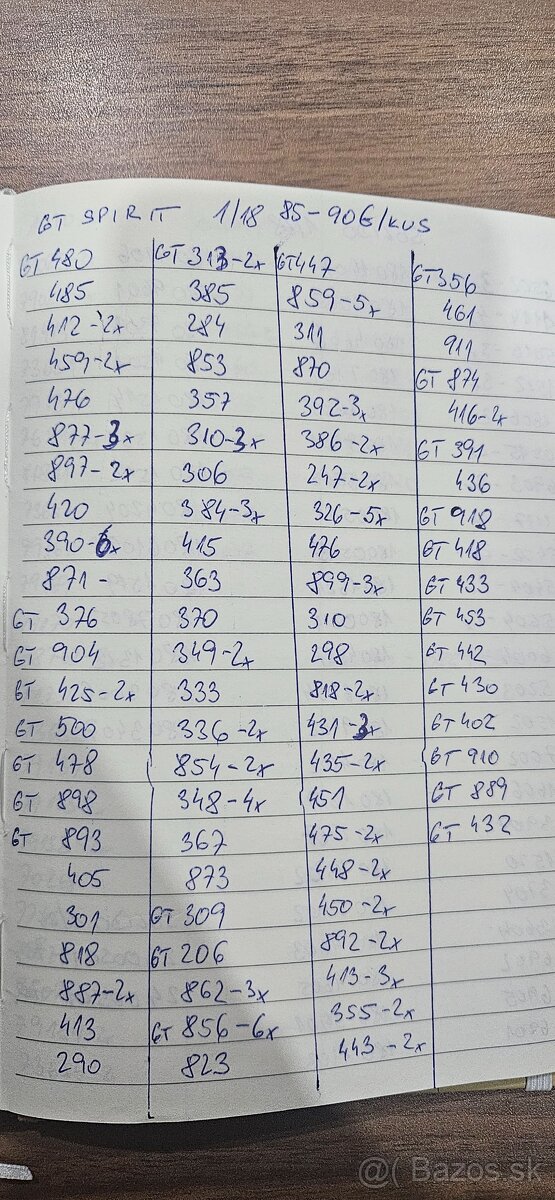 GT SPIRIT 1/18 85-90€/KUS
GT 480
485
412-2x
459-2x
476
877-3x
897-2x
420
390-6x
871-
GT 376
GT 904
GT 425-2x
GT 500
GT 478
GT 898
GT 893
405
301
818
887-2x
413
290
GT 313-2x
385
284
853
357
310-3x
306
384-3x
415
363
370
349-2x
333
336-2x
854-2x
348-4x
367
873
GT 309
GT 206
862-3x
GT 856-6x
823
GT447
859-5x
311
870
392-3x
386-2x
247-2x
326-5x
476
899-3x
310
298
818-2x
431-3x
435-2x
451
475-2x
448-2x
450-2x
892-2x
413-3x
355-2x
443-2x
GT356
461
911
GT 874
416-2x
GT 391
436
GT 918
GT 418
GT 433
GT 453
GT 442
GT 430
GT 402
GT 910
GT 889
GT 432
@( Bazos.sk